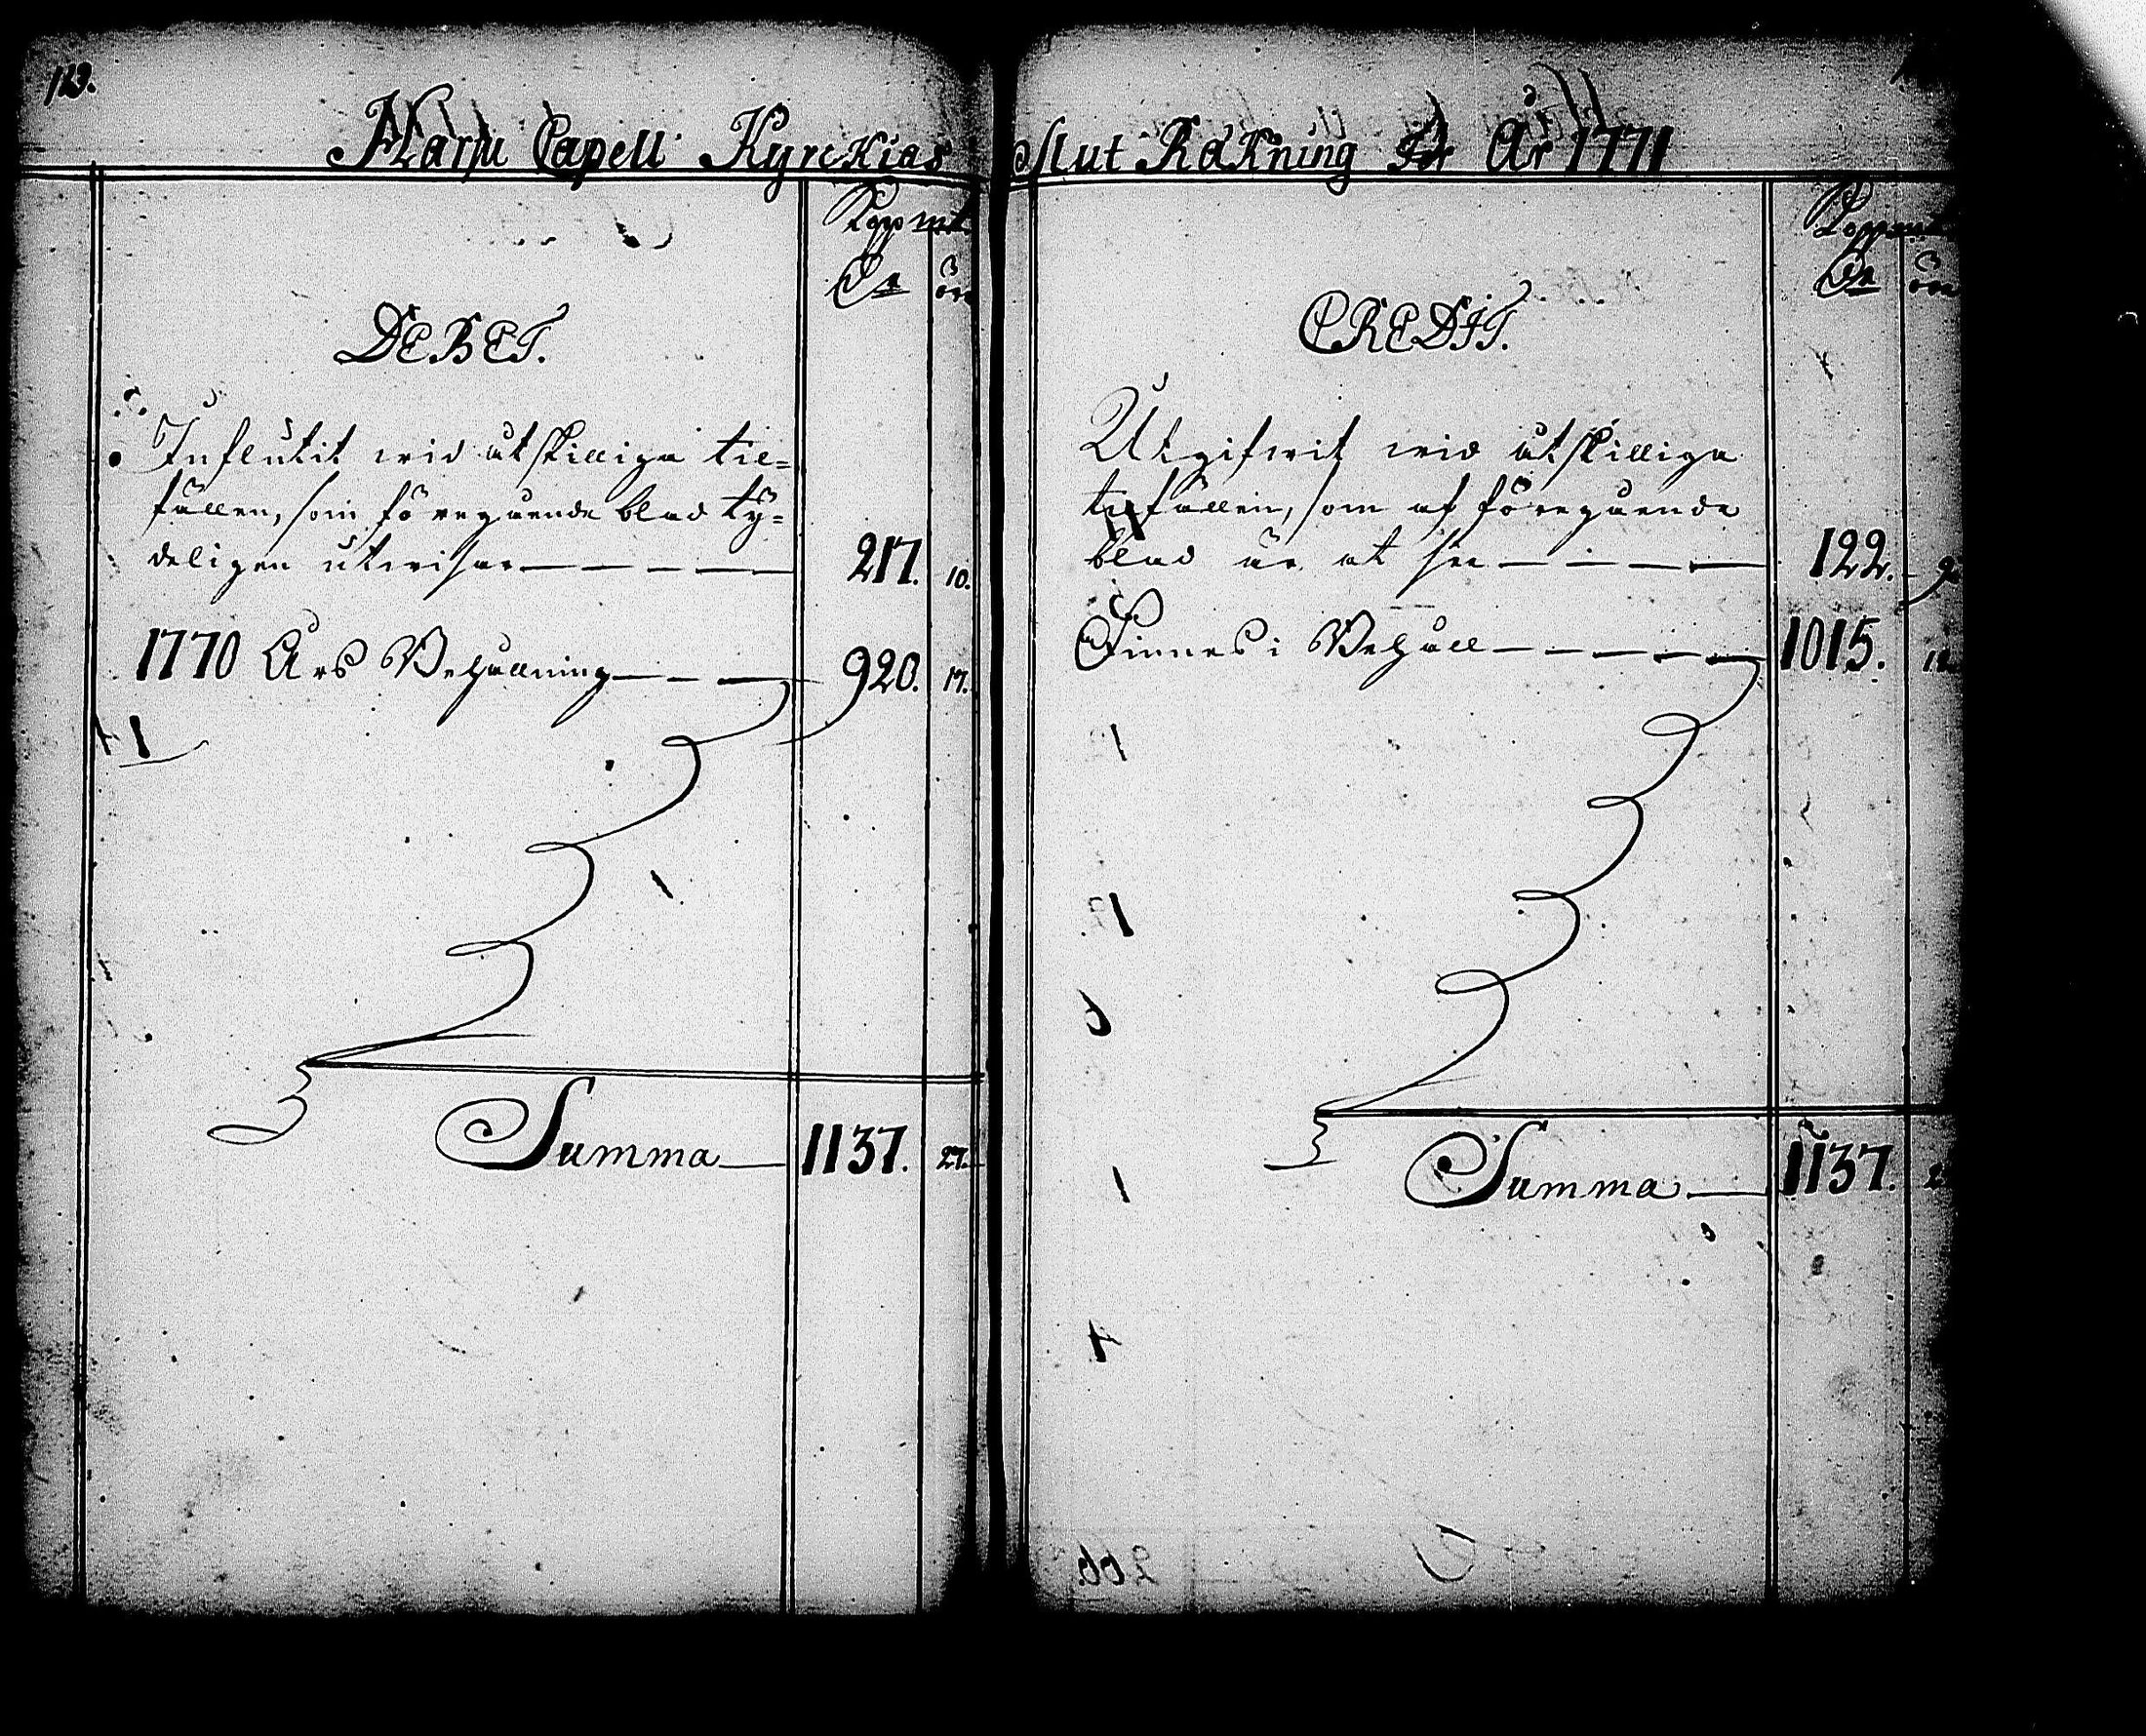 Capell Kyrckias Slut Räkning För År 1771
Koppmt
Dr öre
DEBET.
Influtit wid åtskilliga til=
fällen, som föregående blad ty=
deligen utwisar 217. 10.
1770 Års Behållning 920. 17.
Summa 1137. 27.
Koppmt
Dr öre
CREDIT.
Utgifwit wid åtskilliga
tilfällen, som af föregående
blad är at see 122. 9
Finnes i Behåll 1015.
Summa 1137.